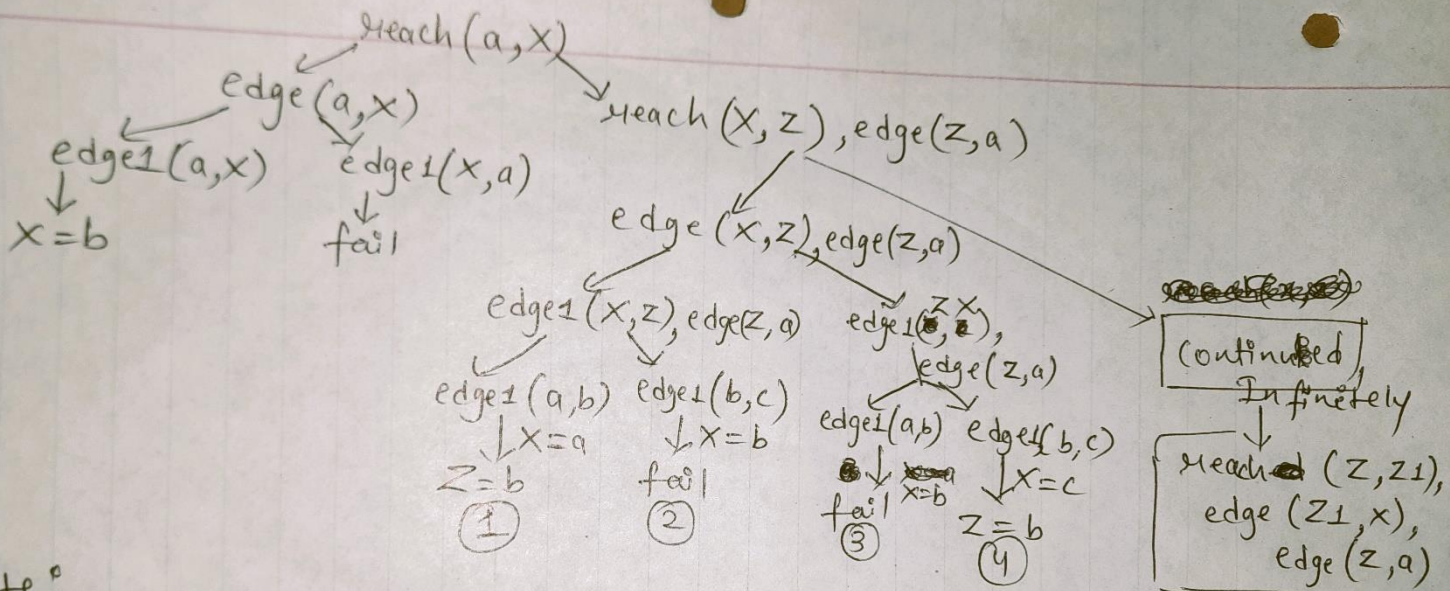 reach(a,x)
edge(a,x)
reach(x,z), edge(z,a)
edge1(a,x)
edge1(x,a)
x=b
fail
edge(x,z), edge(z,a)
edge1(x,z), edge(z,a)
edge1(z,x),
edge(z,a)
edge1(a,b)
x=a
z=b
1
edge1(b,c)
x=b
fail
2
edge1(a,b)
x=b
fail
3
edge1(b,c)
x=c
z=b
4
Continued,
Infinetely
reach(z,z1),
edge(z1,x),
edge(z,a)